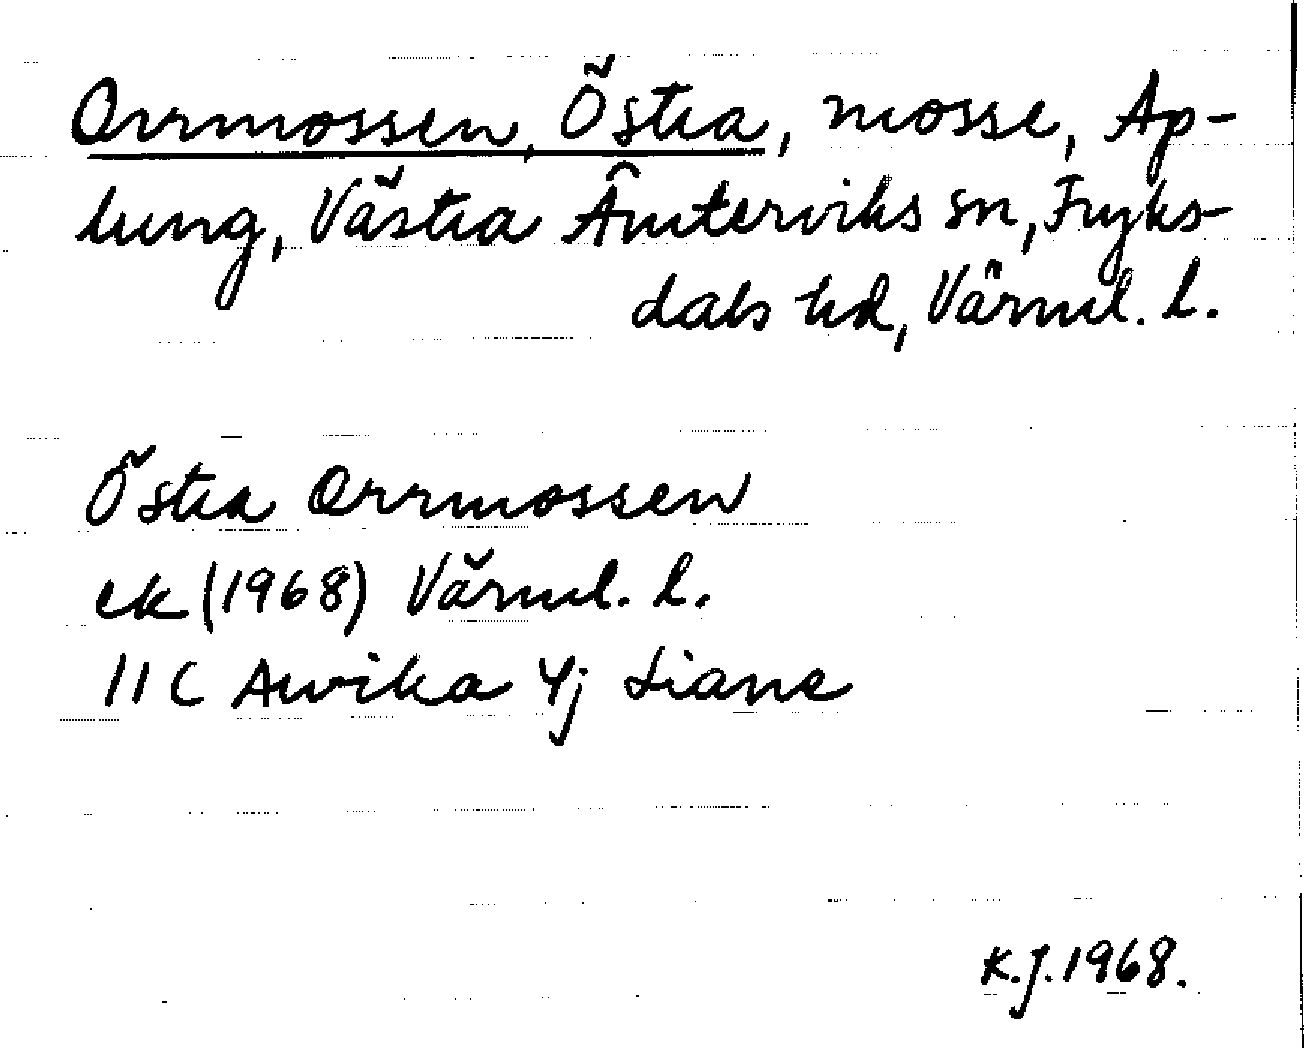 Orrmossen, Östra, mosse, Ap-
lung, Västra Ämterviks sn, Fryks-
dals hd, Värml. l.
Östra Orrmossen
ek (1968) Värml. l.
11C Arvika 4j Liane
K.J. 1968.